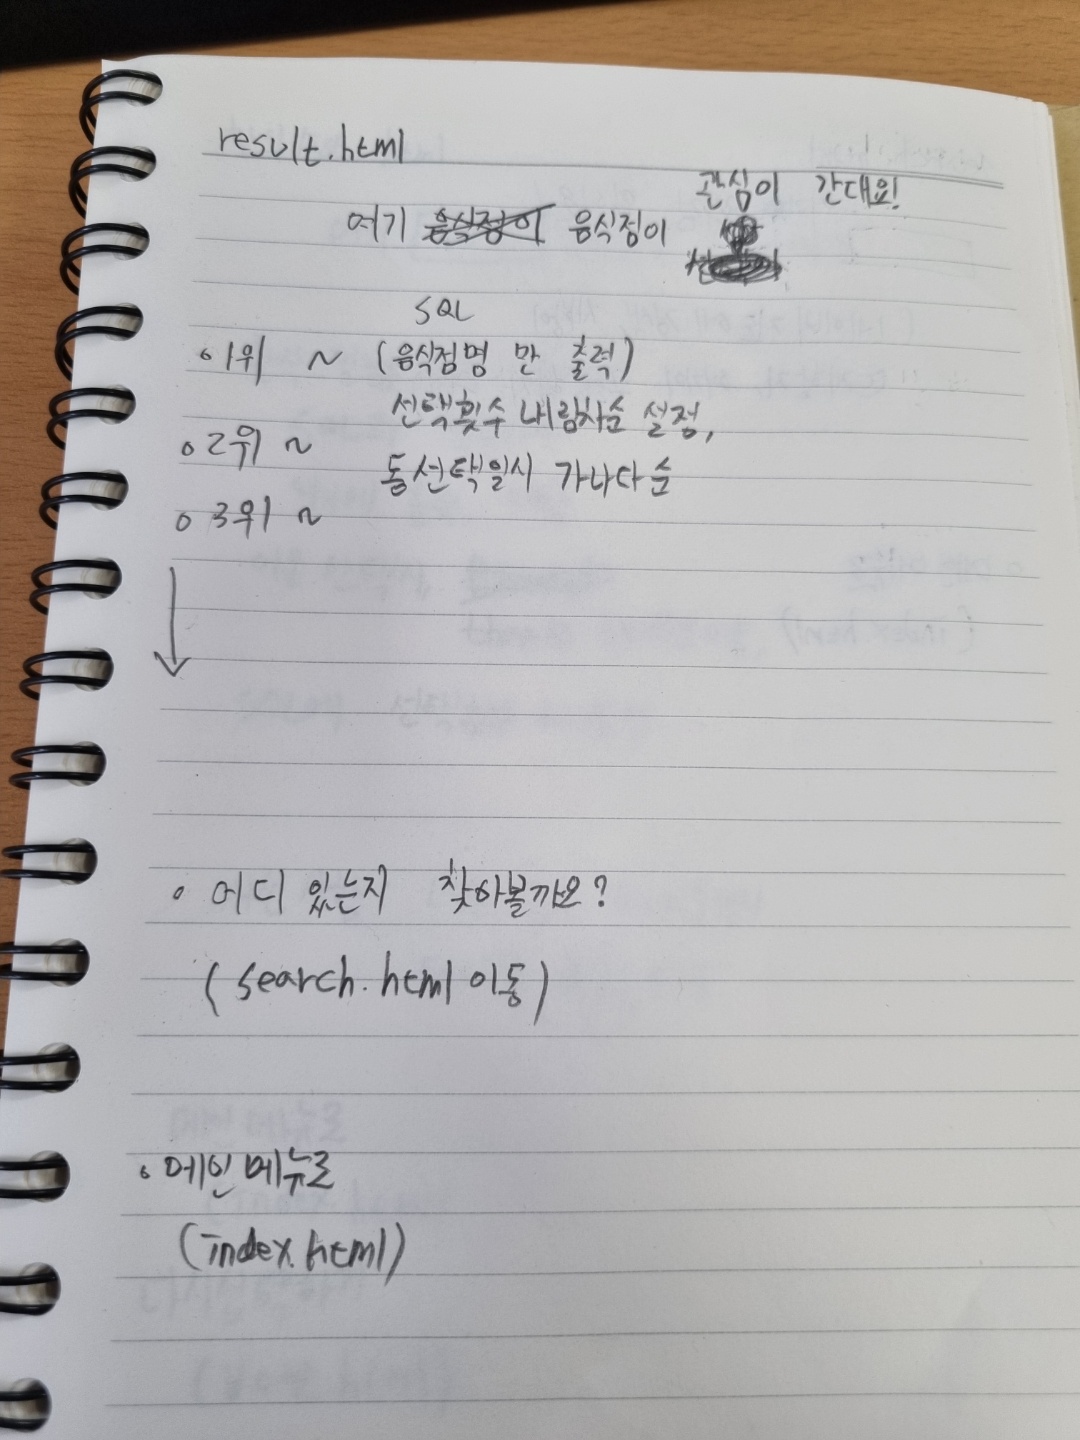 result.html
여기 음식점이 음식점이 관심이 간대요!
SQL
1위 ~ (음식점명 만 출력)
선택횟수 내림차순 설정,
2위 ~
동선택일시 가나다순
3위 ~
어디 있는지 찾아볼까요?
(search.html 이동)
메인메뉴로
(index.html)